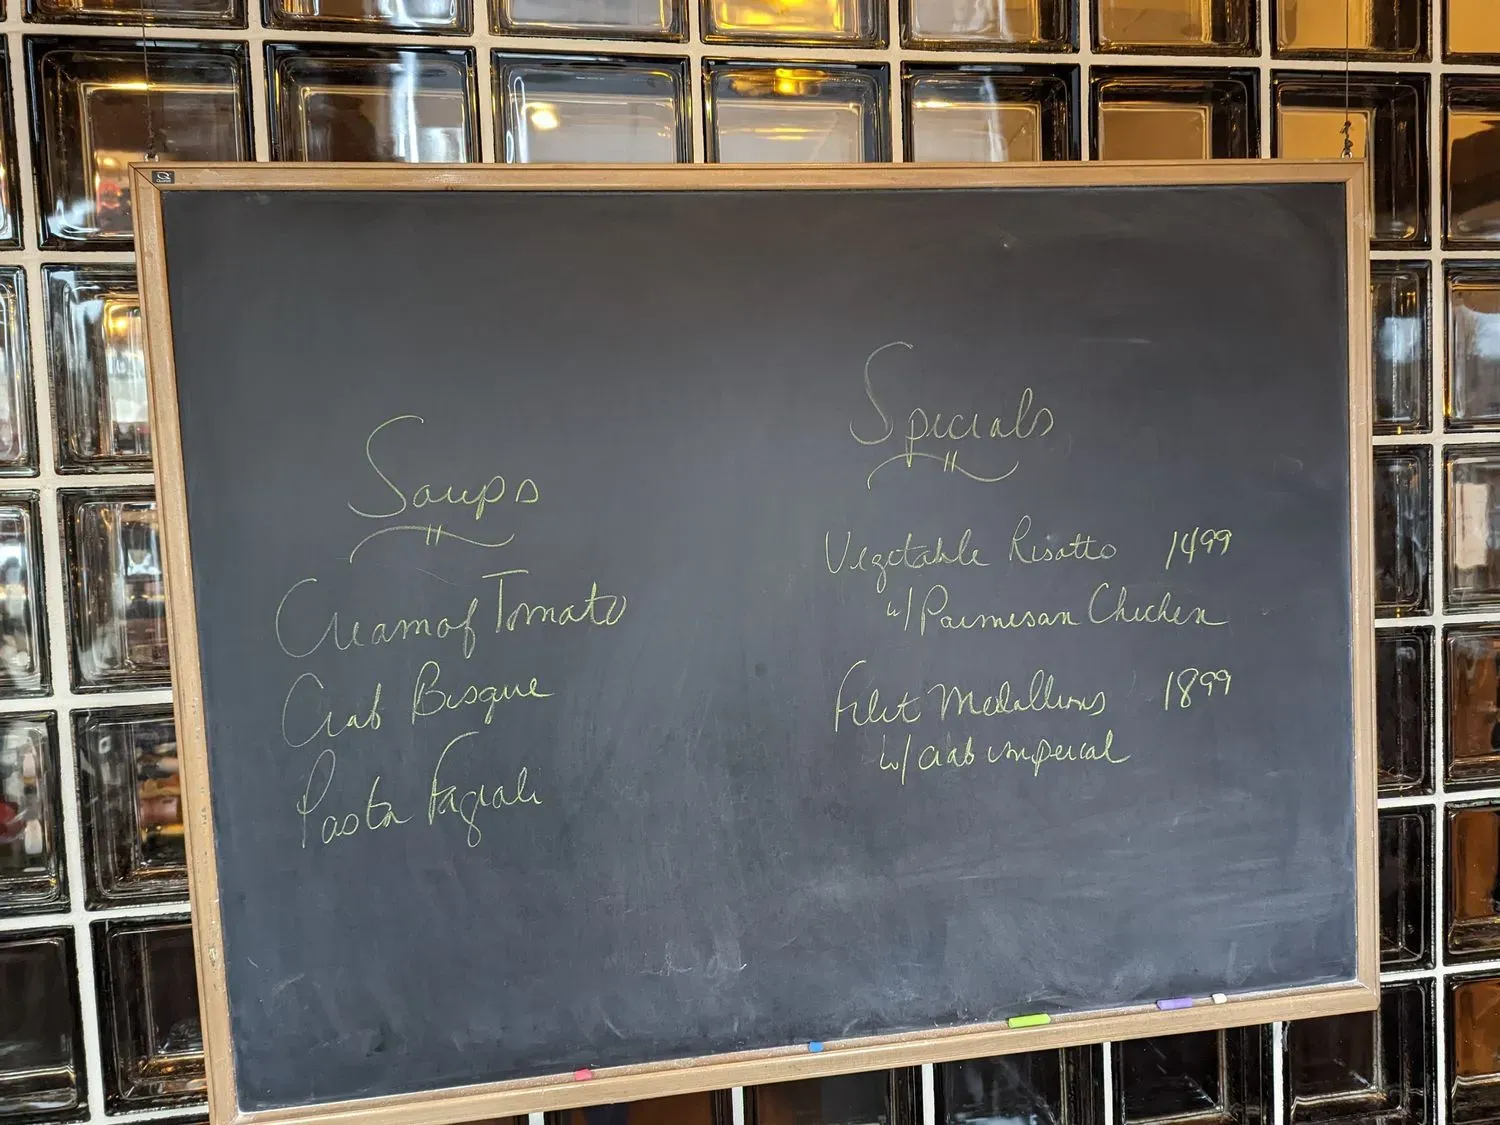 Soups
Cream of Tomato
Crab Bisque
Pasta Fagioli
Specials
Vegetable Risotto 1499
w/ Parmesan Chicken
Filet Medallions 1899
w/ crab imperial